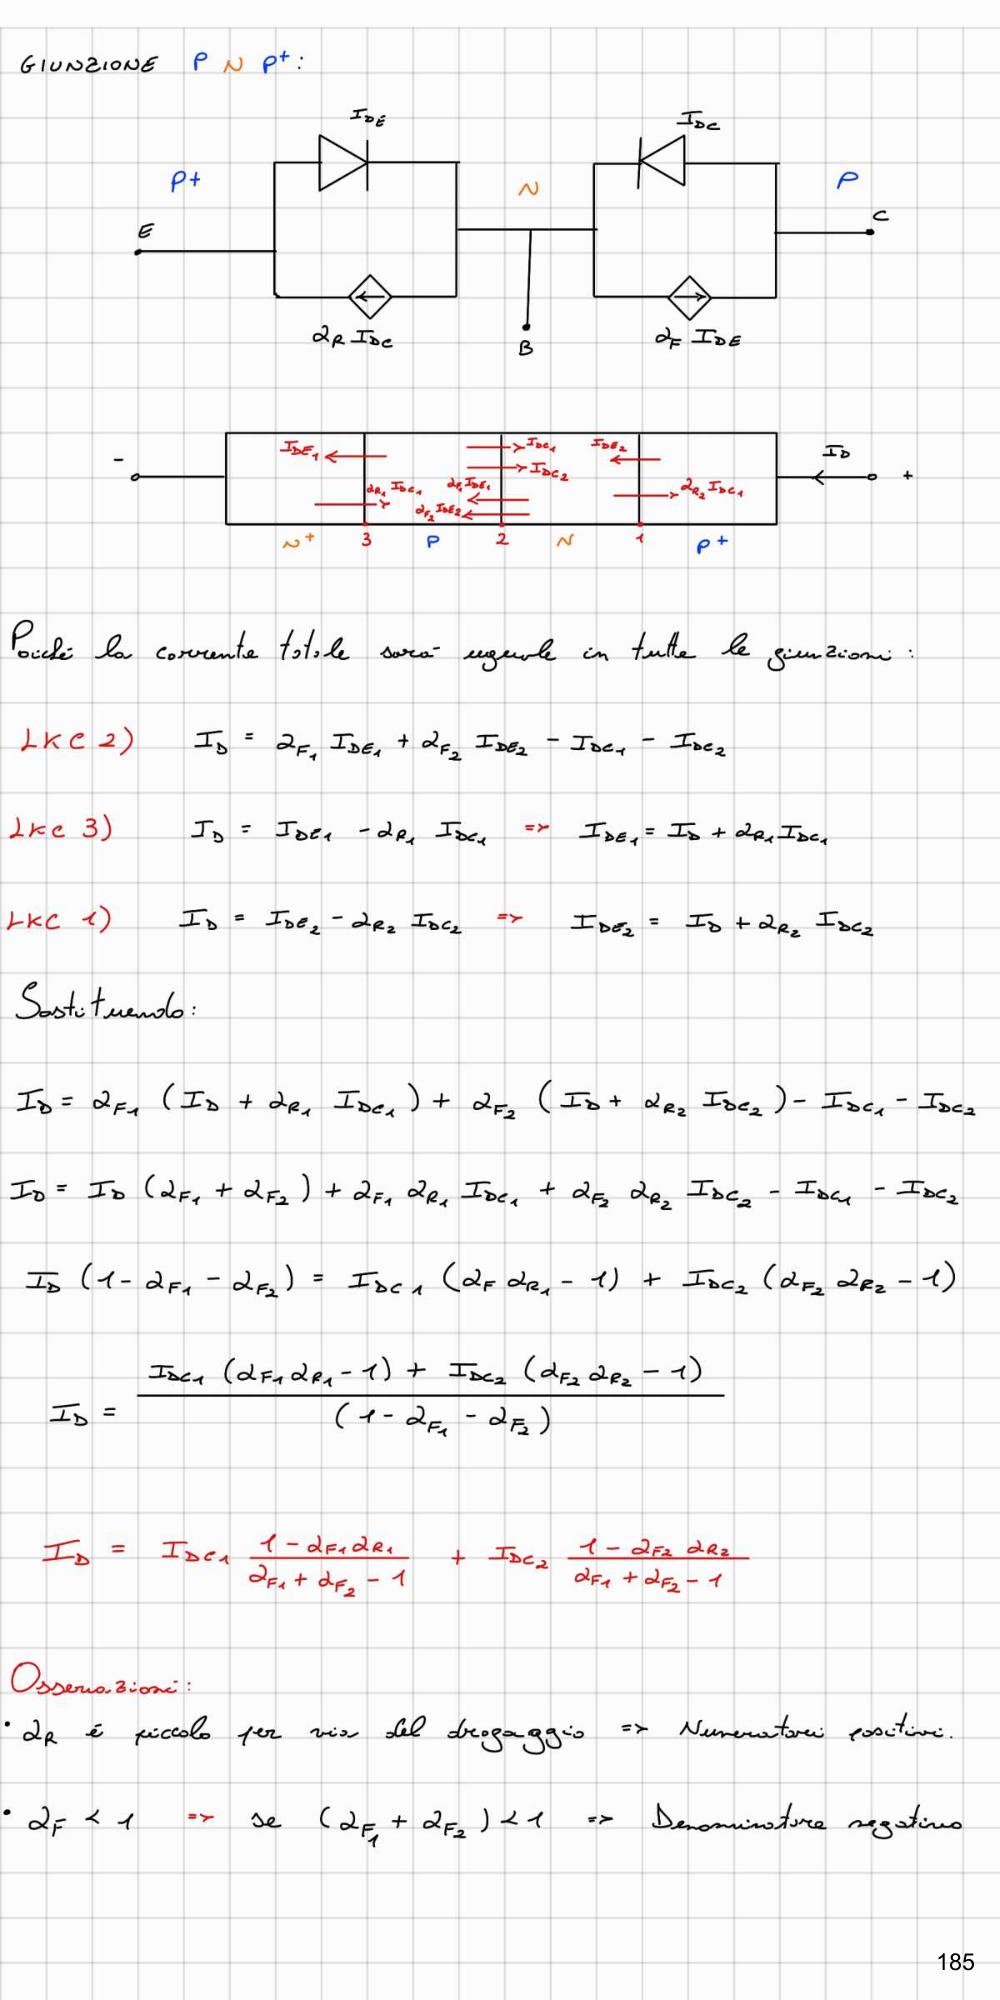 GIUNZIONE P N P+:
I_DE I_DC
P+ N P
E C
α_R I_DC B α_F I_DE
I_DE1 I_DC1 I_DE2 I_D
- I_DC2 +
α_R1 I_DC1 α_F1 I_DE1 α_R2 I_DC1
α_F2 I_DE2
N+ 3 P 2 N 1 P+
Poiché la corrente totale sarà uguale in tutte le giunzioni:
LKC 2) I_D = α_F1 I_DE1 + α_F2 I_DE2 - I_DC1 - I_DC2
LKC 3) I_D = I_DE1 - α_R1 I_DC1 => I_DE1 = I_D + α_R1 I_DC1
LKC 1) I_D = I_DE2 - α_R2 I_DC2 => I_DE2 = I_D + α_R2 I_DC2
Sostituendo:
I_D = α_F1 (I_D + α_R1 I_DC1) + α_F2 (I_D + α_R2 I_DC2) - I_DC1 - I_DC2
I_D = I_D (α_F1 + α_F2) + α_F1 α_R1 I_DC1 + α_F2 α_R2 I_DC2 - I_DC1 - I_DC2
I_D (1 - α_F1 - α_F2) = I_DC1 (α_F α_R1 - 1) + I_DC2 (α_F2 α_R2 - 1)
I_DC1 (α_F1 α_R1 - 1) + I_DC2 (α_F2 α_R2 - 1)
I_D =
(1 - α_F1 - α_F2)
I_D = I_DC1 (1 - α_F1 α_R1)/(α_F1 + α_F2 - 1) + I_DC2 (1 - α_F2 α_R2)/(α_F1 + α_F2 - 1)
Osservazioni:
• α_R é piccolo per via del drogaggio => Numeratori positivi.
• α_F < 1 => se (α_F1 + α_F2) < 1 => Denominatore negativo
185